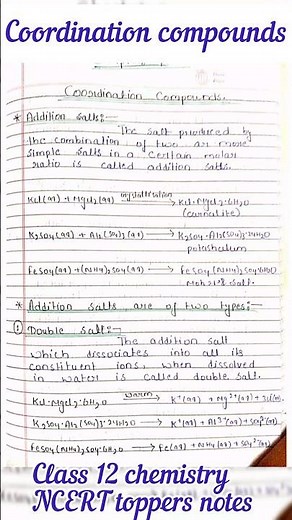 Coordination compounds
Coordination Compounds.
* Addition Salts:-
The salt produced by
the combination of two or more
simple salts in a certain molar
ratio is called addition salts.
crystallisation
Kcl(aq) + Mgcl₂(aq) ⟶ Kcl·Mgcl₂·6H₂O
(carnalite)
K₂SO₄(aq) + Al₂(SO₄)₃(aq) ⟶ K₂SO₄·Al₂(SO₄)₃·24H₂O
potashalum
FeSO₄(aq) + (NH₄)₂SO₄(aq) ⟶ FeSO₄(NH₄)₂SO₄·6H₂O
Mohr's Salt.
* Addition salts are of two types:-
① Double Salt:-
The addition salt
which dissociates into all its
constituent ions, when dissolved
in water is called double salt.
Kcl·Mgcl₂·6H₂O ⟶ K⁺(aq) + Mg²⁺(aq) +
K₂SO₄·Al₂(SO₄)₃·24H₂O ⟶ K⁺(aq) + Al³⁺(aq) + SO₄²⁻(aq)
FeSO₄(NH₄)₂SO₄·6H₂O ⟶ Fe(aq) + NH₄(aq) + SO₄²⁻(aq)
Class 12 chemistry
NCERT toppers notes